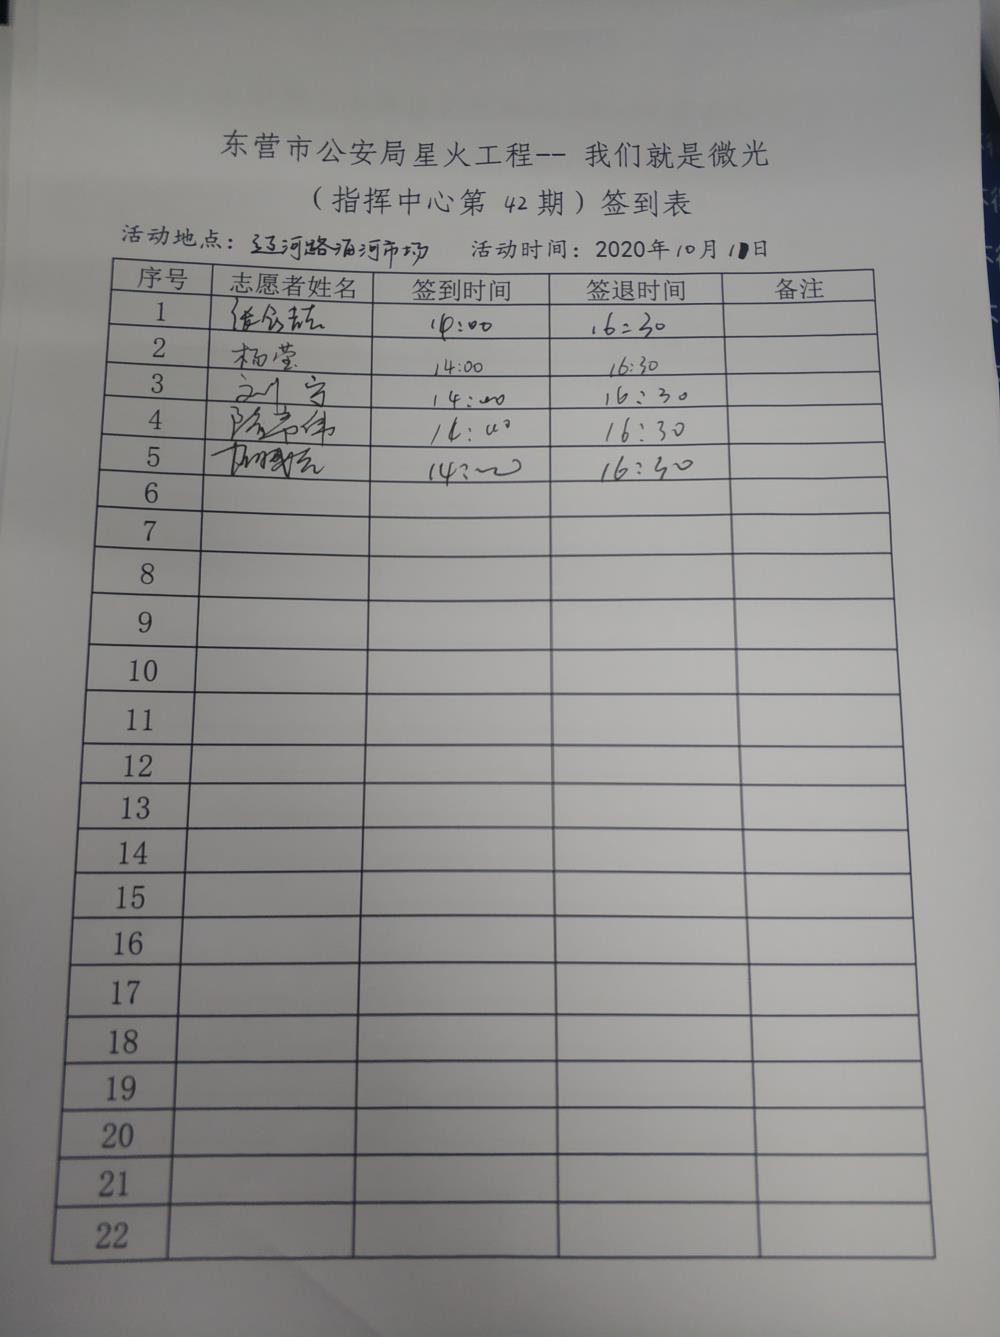 东营市公安局星火工程-- 我们就是微光
（指挥中心第 42 期）签到表
活动地点：辽河路油河市场 活动时间：2020年10月1日
序号 志愿者姓名 签到时间 签退时间 备注
1 14:00 16:30
2 杨莹 14:00 16:30
3 刘宁 14:00 16:30
4 14:00 16:30
5 14:00 16:30
6
7
8
9
10
11
12
13
14
15
16
17
18
19
20
21
22